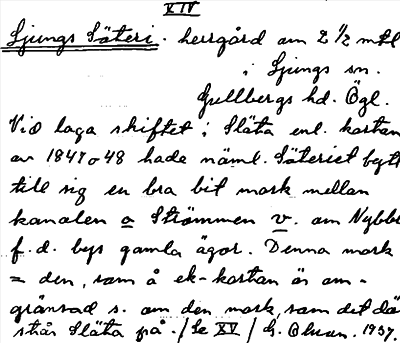 XIV
Ljungs Säteri. herrgård om 2 1/2 mtl
i Ljungs sn.
Gullbergs hd. Ögl.
Vid laga skiftet i Släta enl. kartan
av 1847 o 48 hade näml. Säteriet bytt
till sig en bra bit mark mellan
kanalen o Strömmen v. om Nybbl
f.d. bys gamla ägor. Denna mark
= den, som å ek-kartan är om-
gränsad s. om den mark, som det då
står Släta på. / Se XV / G. Olsson. 1937.